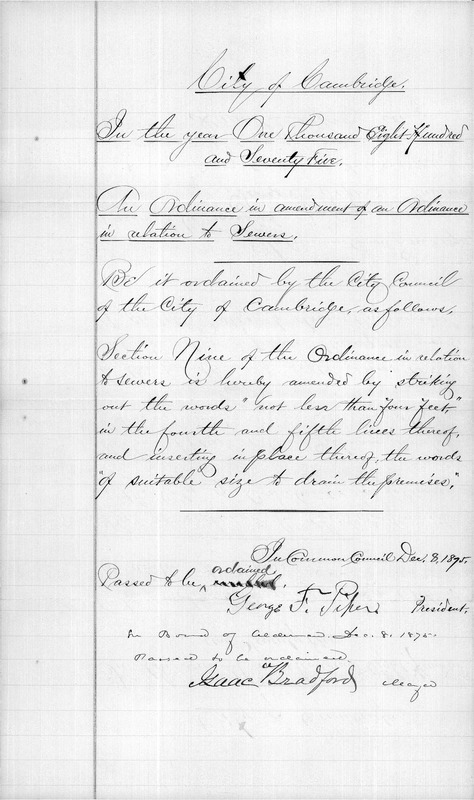 City of Cambridge.
In the year One Thousand Eight Hundred
and Seventy Five.
An Ordinance in amendment of an Ordinance
in relation to Sewers.
Be it ordained by the City Council
of the City of Cambridge, as follows,
Section Nine of the Ordinance in relation
to sewers is hereby amended by striking
out the words "not less than four feet"
in the fourth and fifth lines thereof,
and inserting in place thereof, the words
"of suitable size to drain the premises."
In Common Council Dec. 8, 1875.
ordained
Passed to be
George F. Piper President.
In Board of Aldermen. Dec. 8. 1875.
Passed to be ordained.
Isaac Bradford Mayor